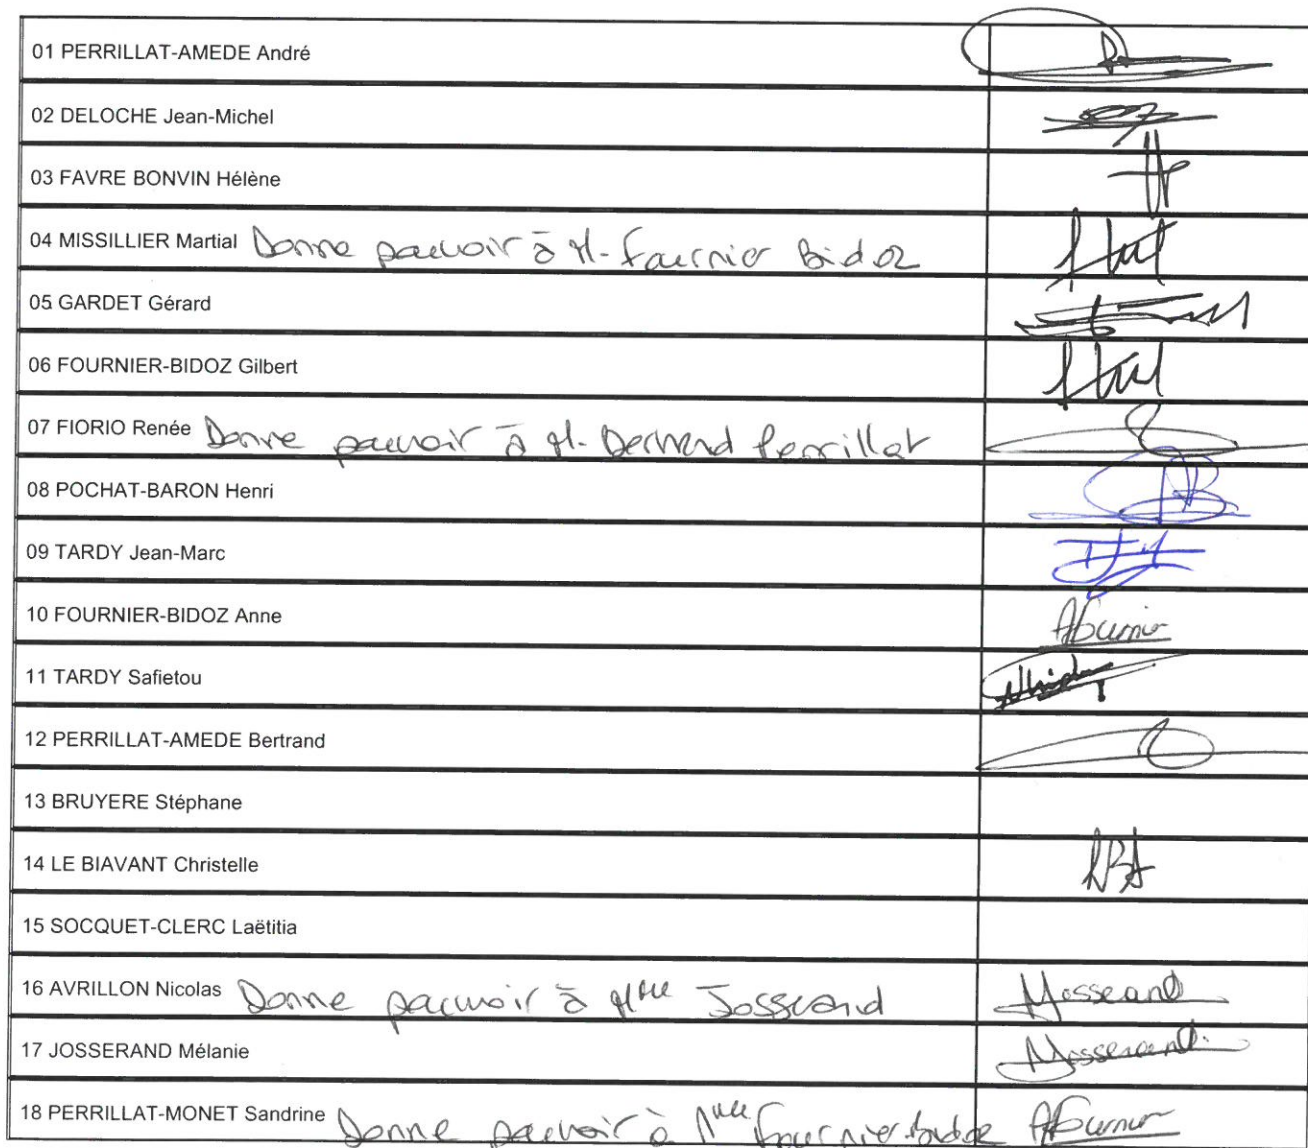 01 PERRILLAT-AMEDE André
02 DELOCHE Jean-Michel
03 FAVRE BONVIN Hélène
04 MISSILLIER Martial Donne pouvoir à M. Fournier Bidoz
05 GARDET Gérard
06 FOURNIER-BIDOZ Gilbert
07 FIORIO Renée Donne pouvoir à M. Bertrand Perrillat
08 POCHAT-BARON Henri
09 TARDY Jean-Marc
10 FOURNIER-BIDOZ Anne AFournier
11 TARDY Safietou
12 PERRILLAT-AMEDE Bertrand
13 BRUYERE Stéphane
14 LE BIAVANT Christelle
15 SOCQUET-CLERC Laëtitia
16 AVRILLON Nicolas Donne pouvoir à Mme Josserand MJosserand
17 JOSSERAND Mélanie MJosserand
18 PERRILLAT-MONET Sandrine Donne pouvoir à Mme Fournier-Bidoz AFournier